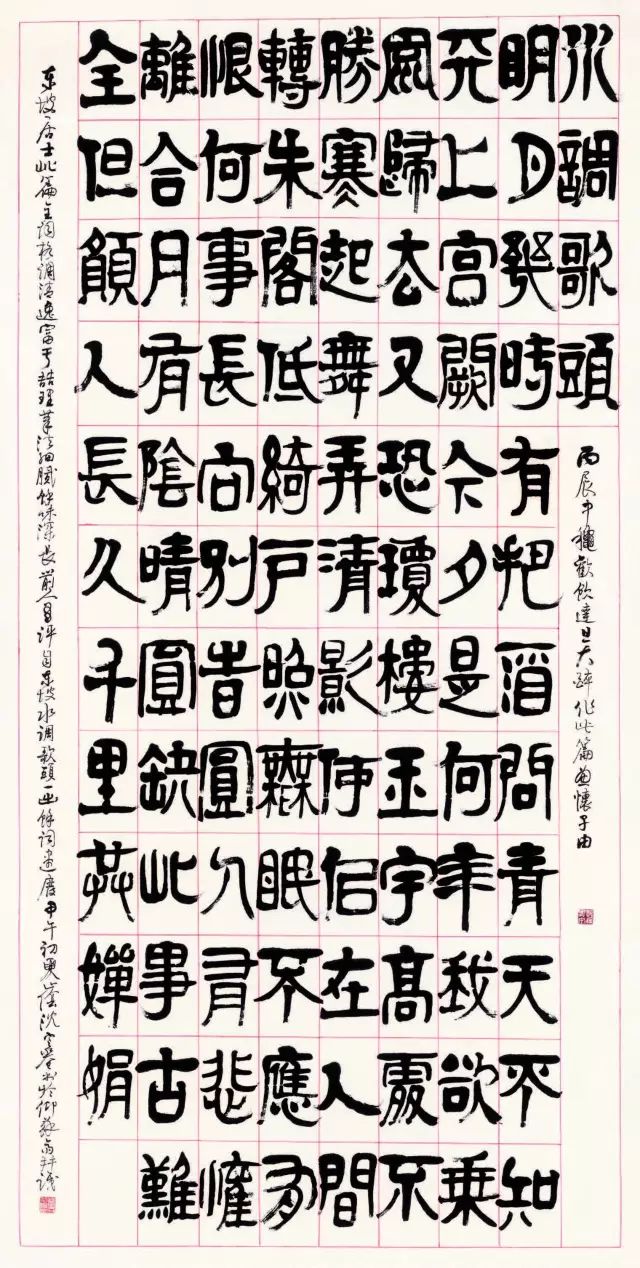 水調歌頭
丙辰中穐歡飲達旦大醉作此篇兼懷子由
明月幾時有把酒問青天不知
天上宮闕今夕是何年我欲乘
風歸去又恐瓊樓玉宇高處不
勝寒起舞弄清影何佀在人間
轉朱閣低綺戶照無眠不應有
恨何事長向別旹圓人有悲懽
離合月有陰晴圓缺此事古難
全但願人長久千里共嬋娟
东坡居士此篇全词格调清逸富于喆理筆法細膩餘味深長前人曾评自东坡水调歌頭一出餘词盡廢甲午初夏於仰蘇齋并識